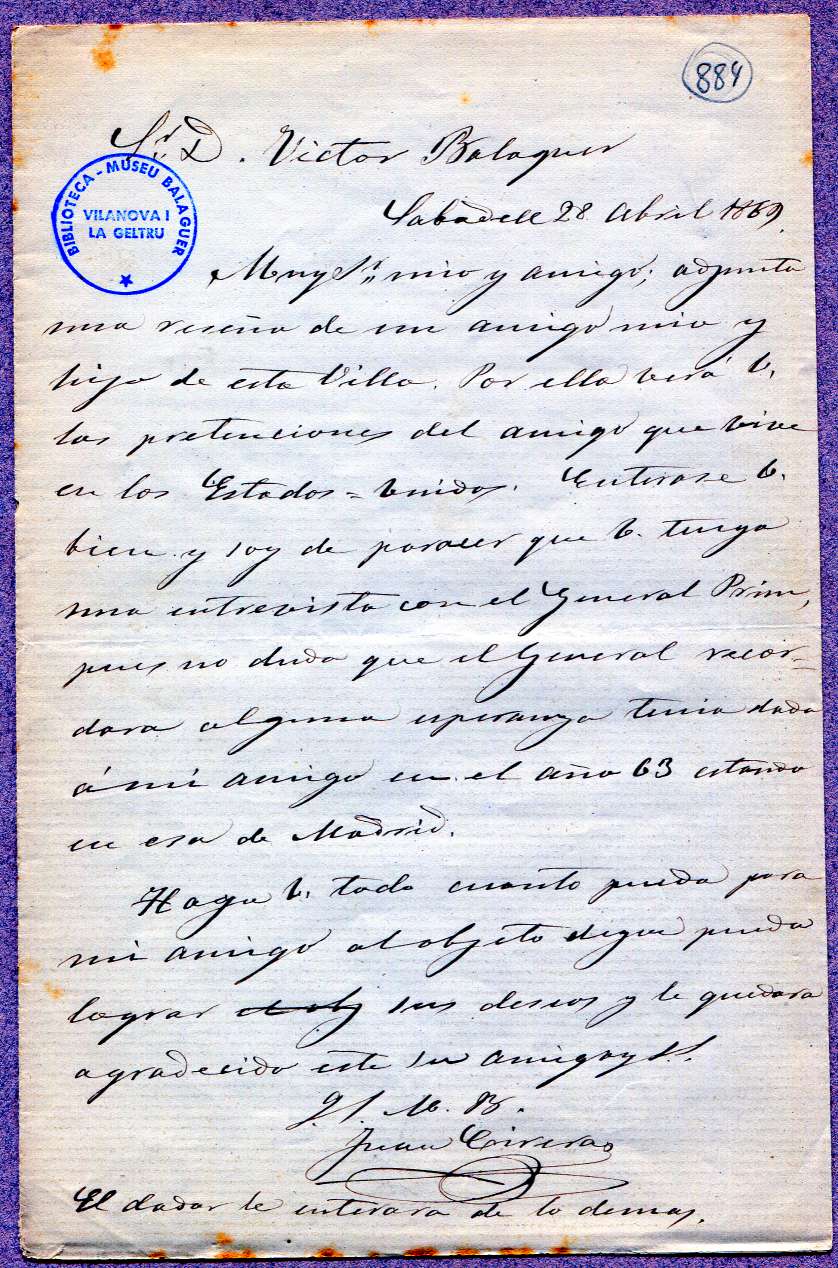 884
Sr. D. Victor Balaguer
BIBLIOTECA - MUSEU BALAGUER
VILANOVA I
LA GELTRU
Sabadell 28 Abril 1869.
Muy Sr. mio y amigo; adjunta
una reseña de un amigo mio y
hijo de esta Villa. Por ella verá V.
las pretenciones del amigo que vive
en los Estados=Unidos. Enterase V.
bien y soy de parecer que V. tenga
una entrevista con el General Prim,
pues no duda que el General recor-
dara alguna esperanza tenia dada
á mi amigo en el año 63 estando
en esa de Madrid.
Haga V. todo cuanto pueda para
mi amigo al objeto de que pueda
lograr sus deseos y le quedara
agradecido este su amigo y S.S.
Q. S. M. B.
Juan
El dador le enterara de lo demas.